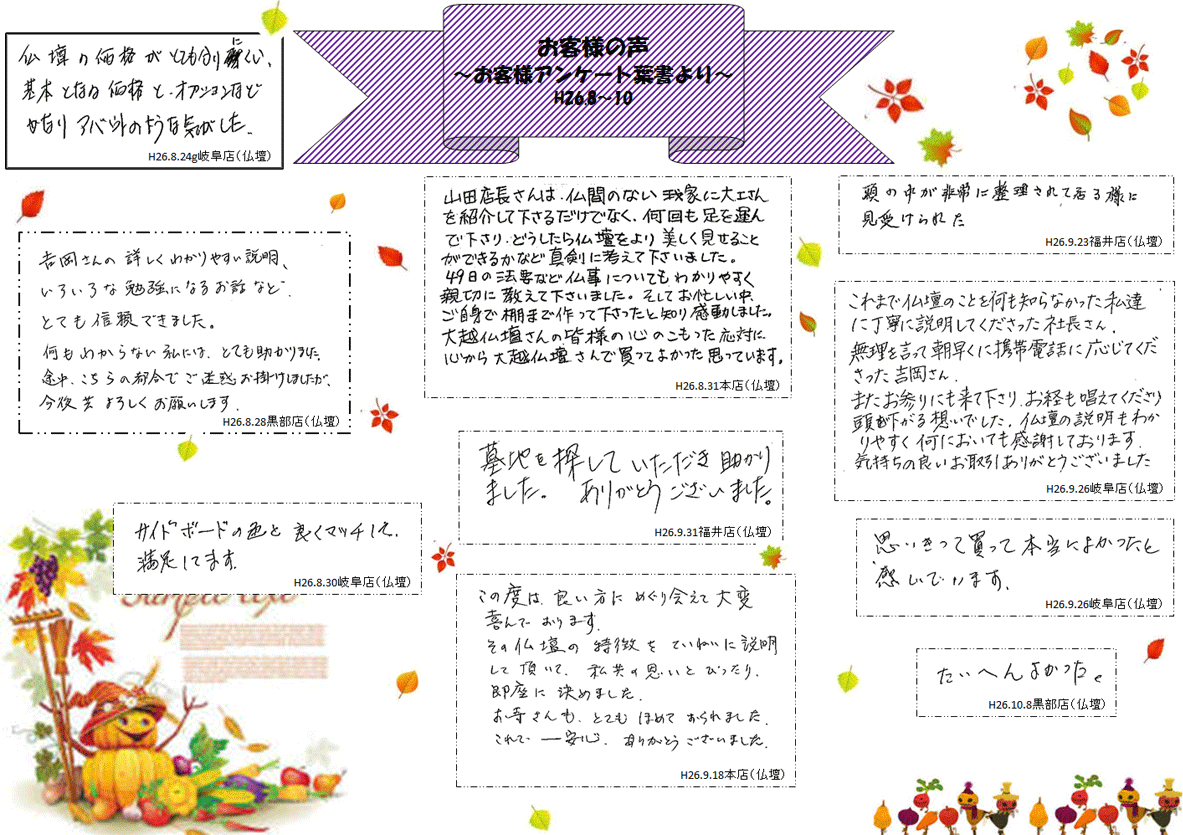 お客様の声
～お客様アンケート葉書より～
H26.8～10
仏壇の価格がとても分りにくい、
基本となる価格と、オプションなど
かなりアバウトのような気がした。
H26.8.24g岐阜店(仏壇)
吉岡さんの詳しくわかりやすい説明、
いろいろな勉強になるお話など、
とても信頼できました。
何もわからない私には、とても助かりました。
途中、こちらの都合でご迷惑お掛けしましたが、
今後共よろしくお願いします。
H26.8.28黒部店(仏壇)
サイドボードの色と良くマッチして、
満足してます。
H26.8.30岐阜店(仏壇)
山田店長さんは、仏間のない我家に大工さん
を紹介して下さるだけでなく、何回も足を運ん
で下さり、どうしたら仏壇をより美しく見せること
ができるかなど真剣に考えて下さいました。
49日の法要など仏事についてもわかりやすく
親切に教えて下さいました。そしてお忙しい中、
ご自身で棚まで作って下さったと知り感動しました。
大越仏壇さんの皆様の心のこもった応対に、
心から大越仏壇さんで買ってよかった思っています。
H26.8.31本店(仏壇)
墓地を探していただき助かり
ました。ありがとうございました。
H26.9.31福井店(仏壇)
この度は、良い方にめぐり会えて大変
喜んでおります。
その仏壇の特徴をていねいに説明
して頂いて、私共の思いとぴったり、
即座に決めました。
お寺さんも、とてもほめておられました。
これで一安心、ありがとうございました。
H26.9.18本店(仏壇)
頭の中が非常に整理されて居る様に
見受けられた
H26.9.23福井店(仏壇)
これまで仏壇のことを何も知らなかった私達
に丁寧に説明してくださった社長さん。
無理を言って朝早くに携帯電話に応じてくだ
さった吉岡さん。
またお参りにも来て下さり、お経も唱えてくださり
頭が下がる想いでした。仏壇の説明もわか
りやすく何においても感謝しております。
気持ちの良いお取引ありがとうございました
H26.9.26岐阜店(仏壇)
思いきって買って本当によかったと
感じています。
H26.9.26岐阜店(仏壇)
たいへんよかった。
H26.10.8黒部店(仏壇)